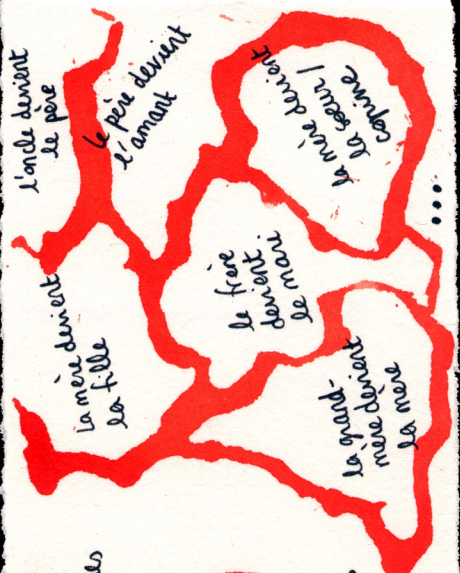 l'oncle devient
le père
le père devient
l'amant
la mère devient
la sœur /
copine
...
le frère
devient
le mari
La mère devient
la fille
la grand-
mère devient
la mère